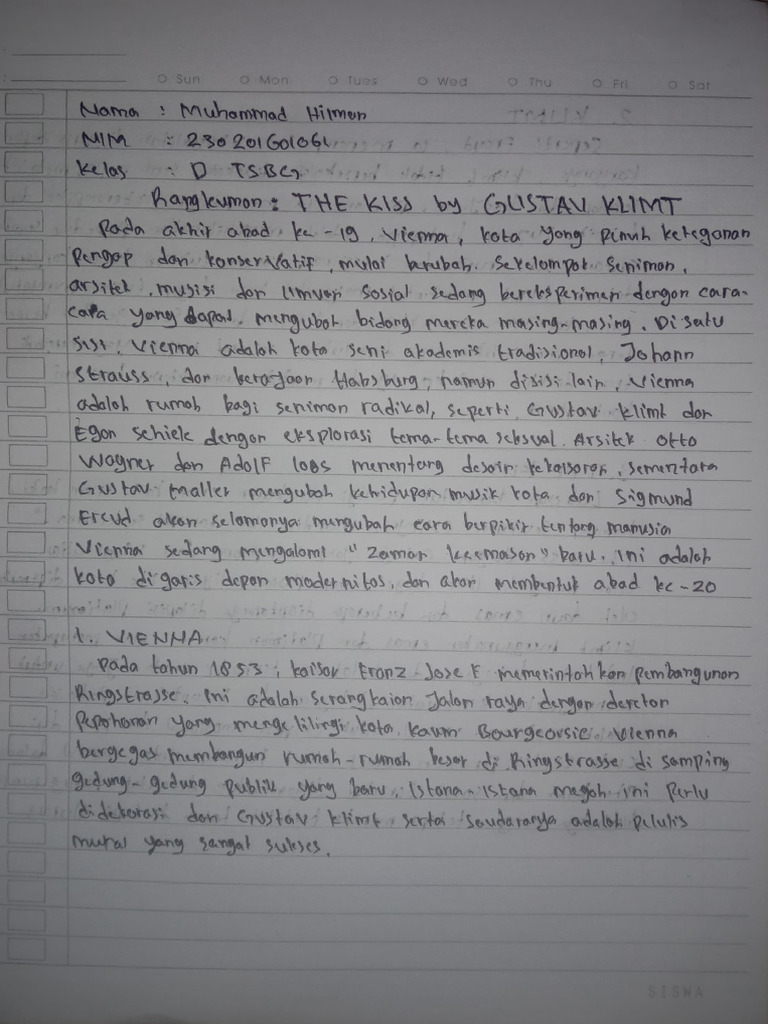 Sun Mon Tues Wed Thu Fri Sat
Nama : Muhammad Hilman
NIM : 23020160106
Kelas : D TSBG
Rangkuman : THE KISS by GUSTAV KLIMT
Pada akhir abad ke-19, Vienna, kota yang penuh ketegangan
Pengap dan konservatif, mulai berubah. Sekelompok seniman,
arsitek, musisi dan ilmuan sosial sedang bereksperimen dengan cara-
cara yang dapat mengubah bidang mereka masing-masing. Di satu
sisi, Vienna adalah kota seni akademis tradisional, Johann
Strauss, dan kerajaan Habsburg, namun disisi lain, Vienna
adalah rumah bagi seniman radikal, seperti Gustav Klimt dan
Egon schiele dengan eksplorasi tema-tema seksual. Arsitek Otto
Wagner dan Adolf loos menentang desain kekaisaran, sementara
Gustav maller mengubah kehidupan musik kota dan Sigmund
Freud akan selamanya mengubah cara berpikir tentang manusia
Vienna sedang mengalami "Zaman keemasan" baru. Ini adalah
kota di garis depan modernitas, dan akan membentuk abad ke-20
1. VIENNA
Pada tahun 1853, kaisar Franz Josef memerintahkan pembangunan
Ringstrasse. Ini adalah serangkaian Jalan raya dengan deretan
Pepohonan yang mengelilingi kota. kaum Bourgeorsie Vienna
bergegas membangun rumah-rumah besar di Ringstrasse di samping
gedung-gedung publik yang baru. Istana-Istana megah ini perlu
didekorasi dan Gustav klimt serta saudaranya adalah pelulis
mural yang sangat sukses.
SISWA